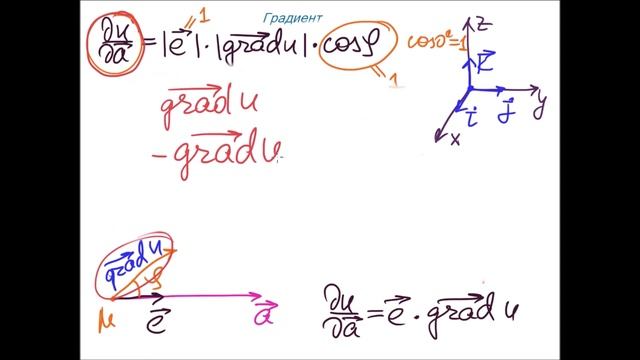 Градиент
∂u/∂a⃗ = |e⃗| · |grad u| · cos φ
=1
=1
cos 0° = 1
grad u
- grad u
z
k⃗
i⃗
j⃗
y
x
grad u
φ
M
e⃗
a⃗
∂u/∂a⃗ = e⃗ · grad u